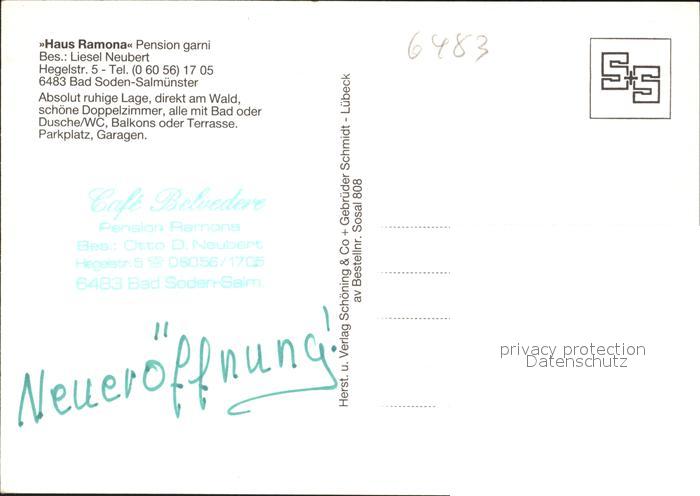 »Haus Ramona« Pension garni
Bes.: Liesel Neubert
Hegelstr. 5 - Tel. (0 60 56) 17 05
6483 Bad Soden-Salmünster
Absolut ruhige Lage, direkt am Wald,
schöne Doppelzimmer, alle mit Bad oder
Dusche/WC, Balkons oder Terrasse.
Parkplatz, Garagen.
Café Belvedere
Pension Ramona
Bes.: Otto D. Neubert
Hegelstr. 5 ☏ 06056/1705
6483 Bad Soden-Salm.
Neueröffnung!
Herst. u. Verlag Schöning & Co + Gebrüder Schmidt - Lübeck
av Bestellnr. Sosal 808
6483
S+S
privacy protection
Datenschutz